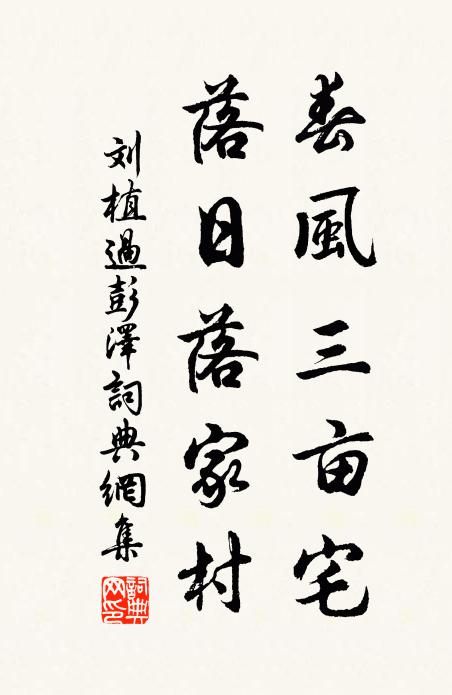 春風三亩宅
落日落家村
刘植過彭澤詞典網集
詞典
网印